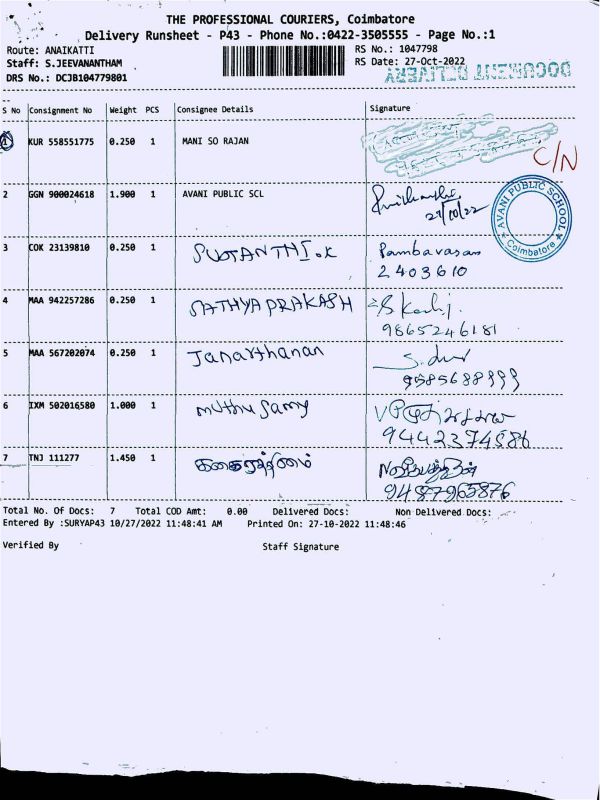 THE PROFESSIONAL COURIERS, Coimbatore
Delivery Runsheet - P43 - Phone No.:0422-3505555 - Page No.:1
Route: ANAIKATTI
Staff: S.JEEVANANTHAM
DRS No.: DCJB104779801
RS No.: 1047798
RS Date: 27-Oct-2022
S No Consignment No Weight PCS Consignee Details Signature
1 KUR 558551775 0.250 1 MANI SO RAJAN
C/N
2 GGN 900024618 1.900 1 AVANI PUBLIC SCL
27/10/22
AVANI PUBLIC SCHOOL
Coimbatore
3 COK 23139810 0.250 1 Pambavasan
2403610
4 MAA 942257286 0.250 1 SATHYA PRAKASH
9865246181
5 MAA 567202074 0.250 1 Janarthanan
6 IXM 502016580 1.000 1 muthu Samy
7 TNJ 111277 1.450 1
9487965876
Total No. Of Docs: 7 Total COD Amt: 0.00 Delivered Docs: Non Delivered Docs:
Entered By :SURYAP43 10/27/2022 11:48:41 AM Printed On: 27-10-2022 11:48:46
Verified By Staff Signature